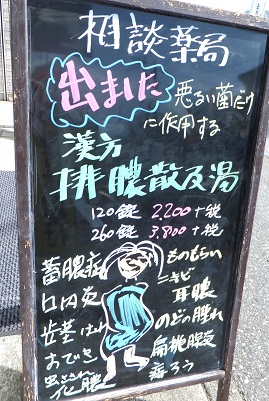 相談薬局
出ました
悪るい菌だけ
に作用する
漢方
排膿散及湯
120錠 2,200+税
260錠 3,800+税
蓄膿症
口内炎
歯茎はれ
おでき
虫さされ
化膿
ものもらい
ニキビ
耳膿
のどの腫れ
扁桃腺炎
痔ろう